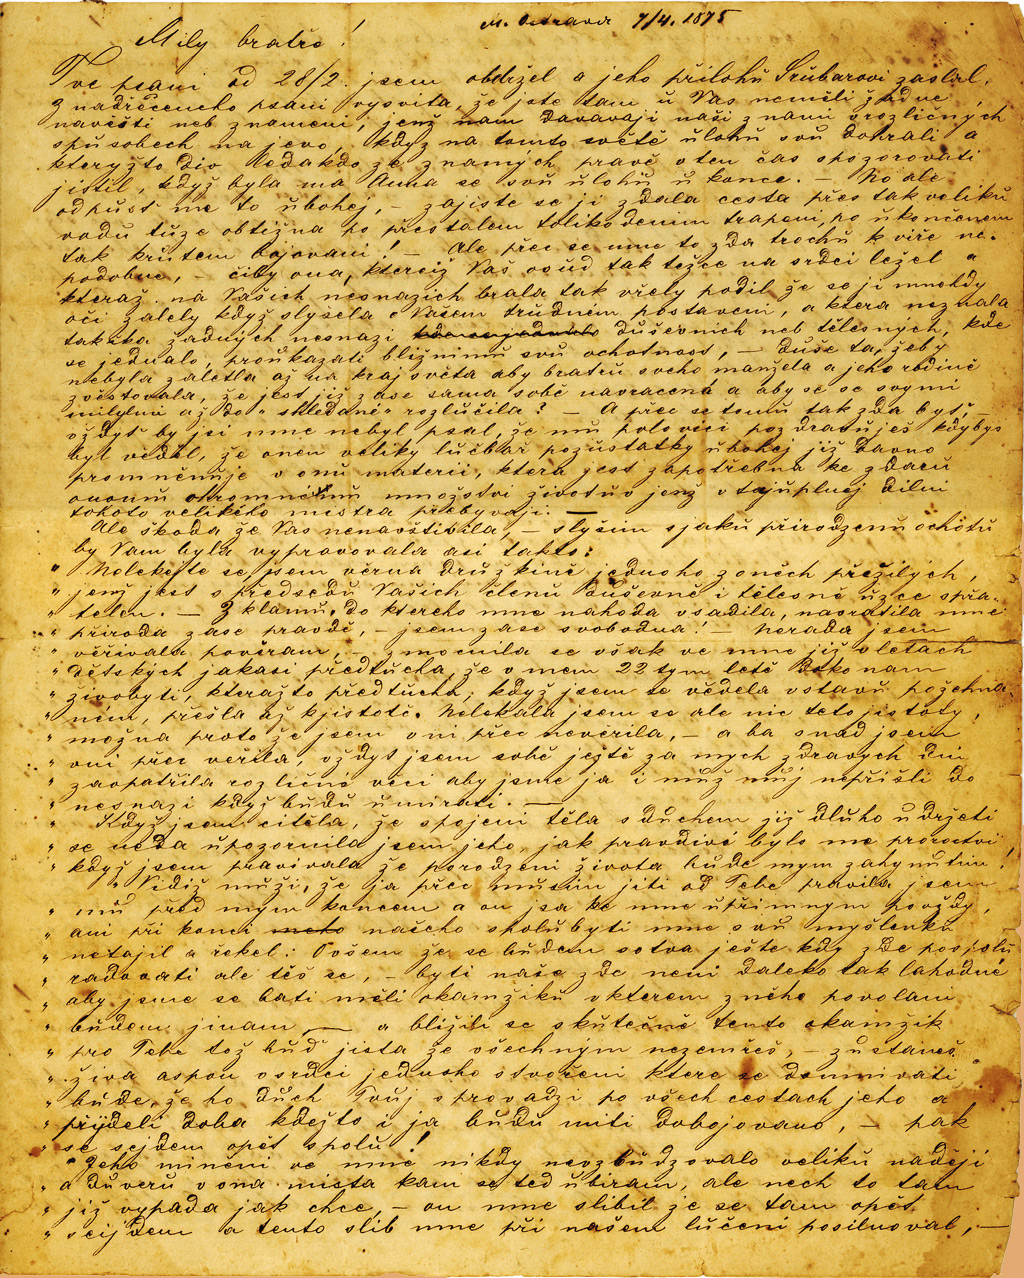 M. Ostrava 7/4. 1875
Milý bratře!
Tve psani od 28/2. jsem obdržel a jeho přilohů Srůbarovi zaslal.
Z nadřečeneho psani vysvita, že jste tam ů Vas neměli žadne
navěsti neb znameni, jenž nam davavaji naši znami v rozličných
spůsobech na jevo, když na tomto světě ůlohů svů dohrali a
kteryžto div nedakdo ze znamých pravě v ten čas spozorovati
jistil, když byla ma Anna se svů ůlohů ů konce. — No ale
odpust me to ůbohej, — zajiste se ji zdala cesta přes tak veliků
vodů tůze obtižna po přestalem tolikodenim trapeni, po ůkončenem
tak krůtem bojovani! — Ale přec se mne to zda trochů k viře ne-
podobne, — čiby ona, kterejž Vaš osůd tak težce na srdci ležel a
kteraž na Vašich nesnazich brala tak vřely podil že se ji mnohdy
oči zalely když slyšela o Vašem trůdnem postaveni, a ktera neznala
takřka žadných nesnazi důševnich neb tělesných, kde
se jednalo, proůkazati bližnimů svů ochotnost, — důše ta, žeby
nebyla zaletla až na kraj světa aby bratrů sveho manžela a jeho rodině
zvěstovala, že jest již zase sama sobě navracená a aby se se svymi
milymi až do "shledaně" rozlůčila? — A přec se tomů tak zda byť, —
vždyť by jsi mne nebyl psal, že mů polovici pozdravůješ kdybys
byl vědel, že onen veliky lůčbař pozůstatky ůbohej již davno
proměnůje v onů materii, ktera jest zapotřebna ke zdarů
onomů ohromněmů množstvi životův jenž v tajůplnej dilni
tohoto velikého mistra přebyvaji. —
Ale škoda že Vas nenavštivila, — slyšim s jaků přirozenů ochotů
by Vam byla vypravovala asi takto:
" Nelekejte se, jsem věrna drůžkině jednoho z oněch přežilých,
" jenž jest s předsedů Vašich členů důševně i tělesně ůzce spřa-
" telen. — Z klamů, do ktereho mne nahoda vsadila, navratila mně
" přiroda zase pravdě, — jsem zase svobodna! — Nerada jsem
" věřivala pověram, — zmocnila se však ve mne již v letach
" dětských jakasi předtůcha, že v mem 22tym letě dokonam
" živobyti, kteražto předtůcha, když jsem se vědela v stavů požehna-
" nem, přešla až k jistotě. Nelekala jsem se ale nic teto jistoty,
" možna proto že jsem v ni přec nevěrila, — a ba snad jsem
" v ni přec věřila, vždyt jsem sobě ještě za mych zdravych dni
" zaopatřila rozličné věci aby jsme ja i můž můj nepřišli do
" nesnazi když bůdů ůmirati. —
" Když jsem citěla, že spojeni těla s důchem již dlůho ůdržeti
" se neda ůpozornila jsem jeho, jak pravdivé bylo me proroctvi
" když jsem pravivala že porodzeni života bůde mym zahynůtim!
" "Vidiž můži, že ja přec můsim jiti od Tebe pravila jsem
" mů před mym koncem a on jsa ke mne ůpřimnym povždy,
" ani při konci našeho spolůbyti mne svů myšlenků
" netajil a řekel: Ovšem že se bůdem sotva ješte kdy zde pospolů
" radovati ale těš se, — byti naše zde neni daleko tak lahodné
" aby jsme se bati měli okamžiků v kterem z něho povolani
" bůdem jinam, — a bližili se skůtečně tento okamžik
" pro Tebe tož bůď jista že všechným nezemřeš, — zůstaneš
" živa aspoň v srdci jednoho stvořeni ktere se domnivati
" bůde, že ho důch Tvůj sprovadzi po všech cestach jeho a
" přijdeli doba kdežto i ja bůdů miti dobojovano, — pak
" se sejdem opět spolů!"
" Jeho miněni ve mně nikdy nevzbůdzovalo veliků naději
" a důverů v ona mista kam se teď ůbiram, ale nech to tam
" již vypada jak chce, — on mne slibil že se tam opět
" scijdem a tento slib mne při našem lůčeni posilnoval, —